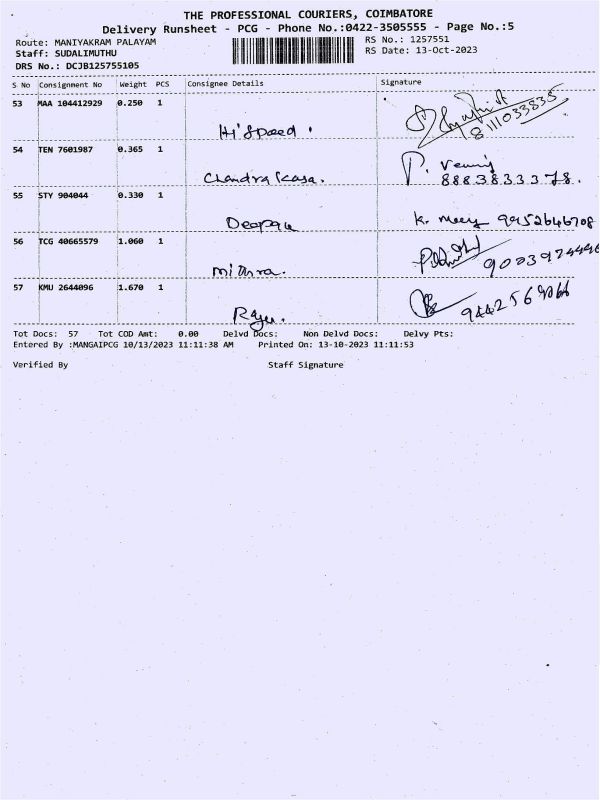 THE PROFESSIONAL COURIERS, COIMBATORE
Delivery Runsheet - PCG - Phone No.:0422-3505555 - Page No.:5
Route: MANIYAKRAM PALAYAM
RS No.: 1257551
Staff: SUDALIMUTHU
RS Date: 13-Oct-2023
DRS No.: DCJB125755105
S No Consignment No Weight PCS Consignee Details Signature
53 MAA 104412929 0.250 1
Hi Speed. 8111033835
54 TEN 7601987 0.365 1
Chandra Kasa. P. 8883833378.
55 STY 904044 0.330 1
Deepak K. 9952646708
56 TCG 40665579 1.060 1
Mithra.
57 KMU 2644096 1.670 1
Raju.
Tot Docs: 57 Tot COD Amt: 0.00 Delvd Docs: Non Delvd Docs: Delvy Pts:
Entered By :MANGAIPCG 10/13/2023 11:11:38 AM Printed On: 13-10-2023 11:11:53
Verified By Staff Signature